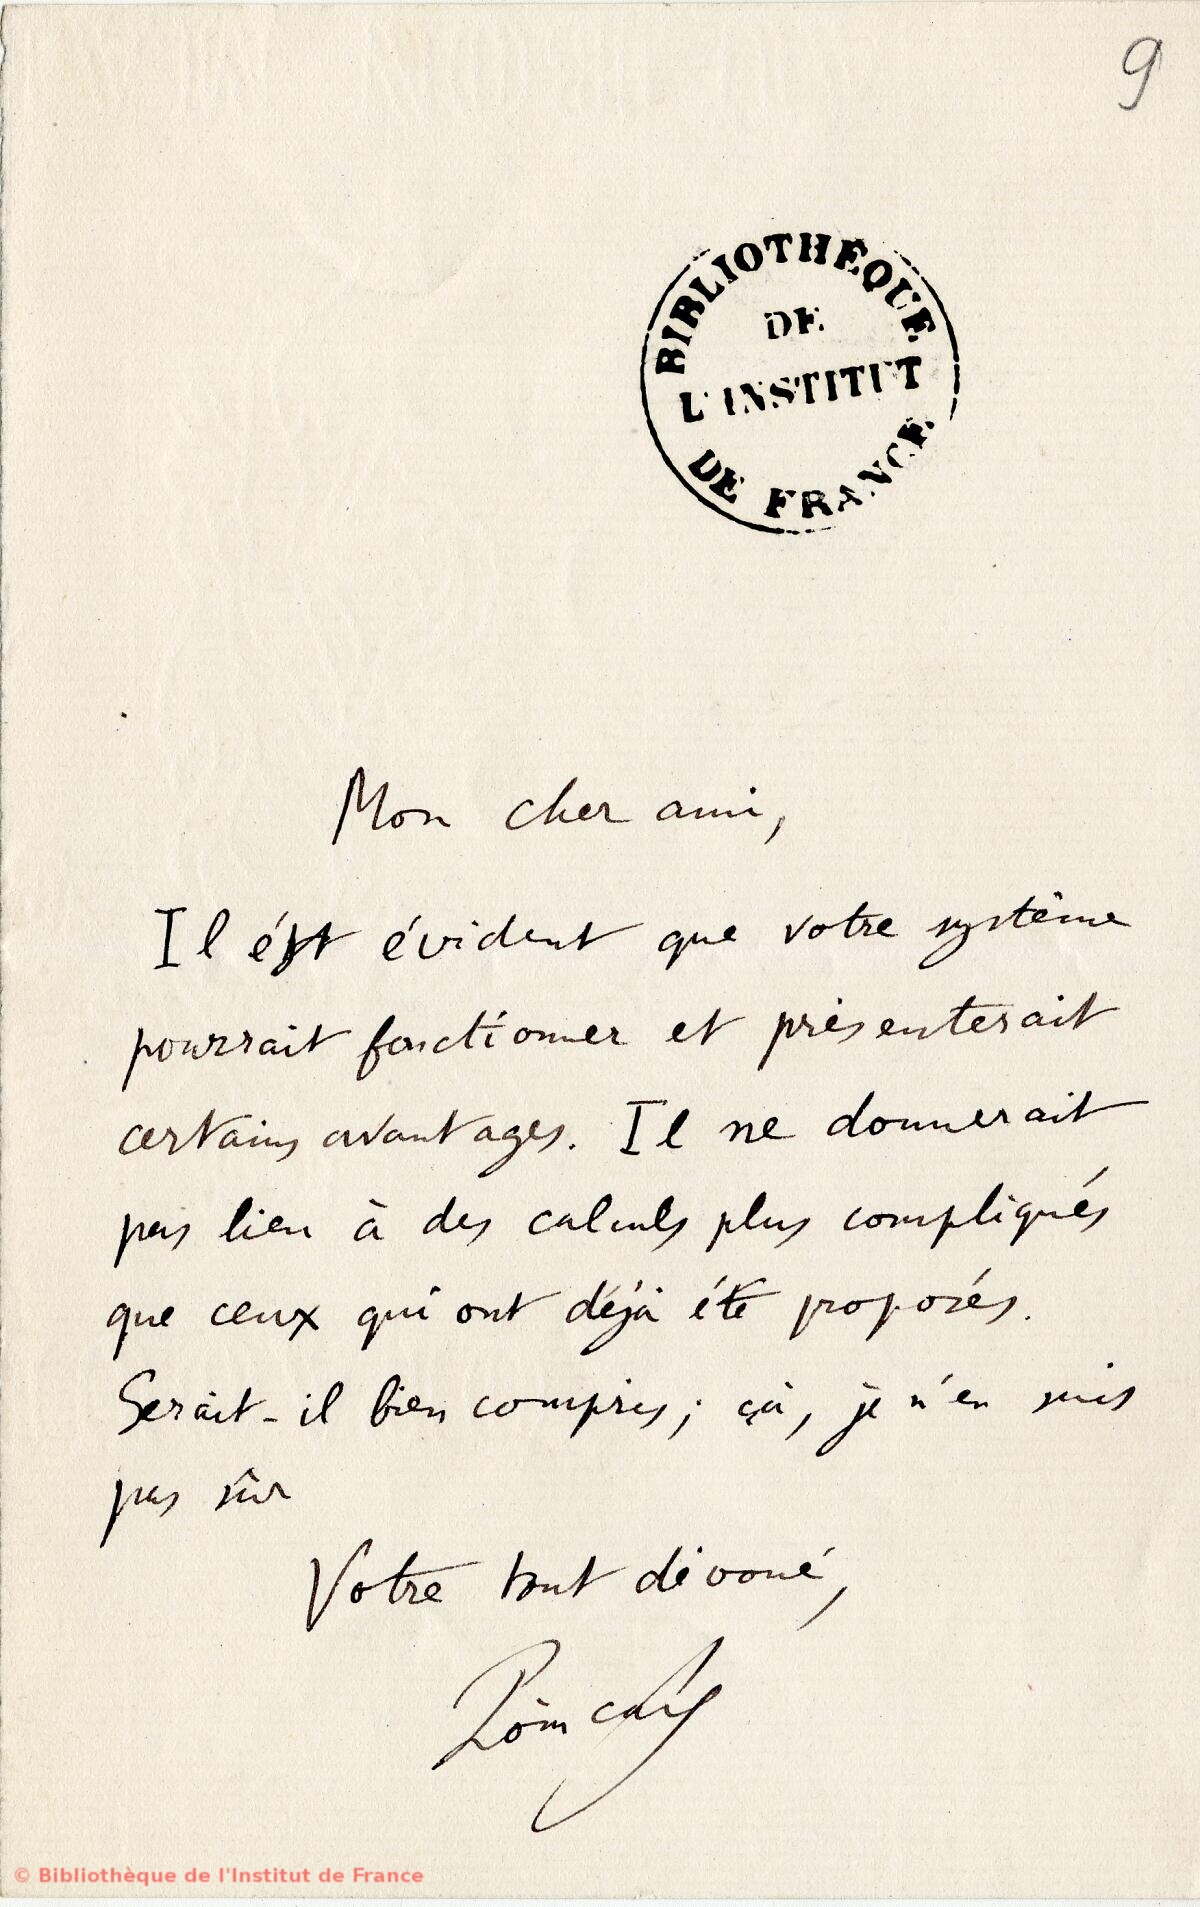 9
BIBLIOTHEQUE
DE
L'INSTITUT
DE FRANCE
Mon cher ami,
Il est évident que votre système
pourrait fonctionner et présenterait
certains avantages. Il ne donnerait
pas lieu à des calculs plus compliqués
que ceux qui ont déjà été proposés.
Serait-il bien compris; çà, je n'en suis
pas sûr
Votre tout dévoué,
Poincaré
© Bibliothèque de l'Institut de France